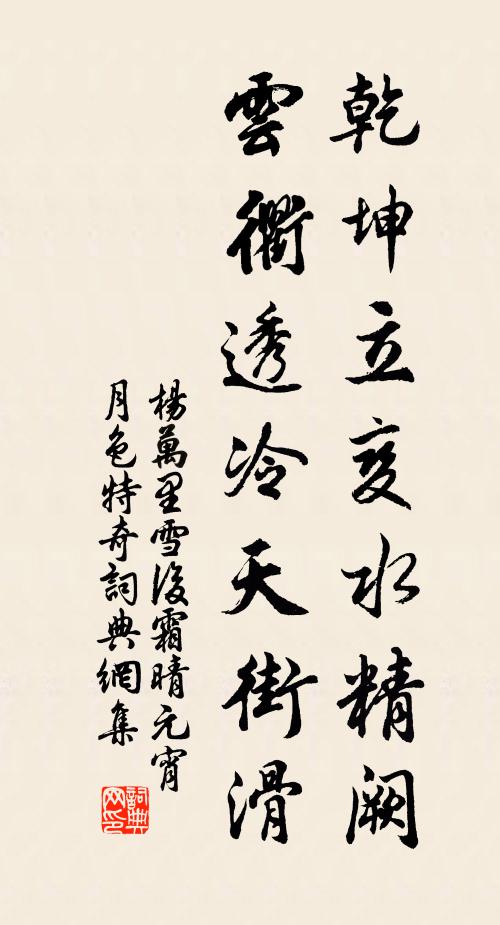 乾坤立变水精闕
雲衢透冷天街滑
楊萬里雪後霜晴元宵
月色特奇詞典網集
詞典
网印